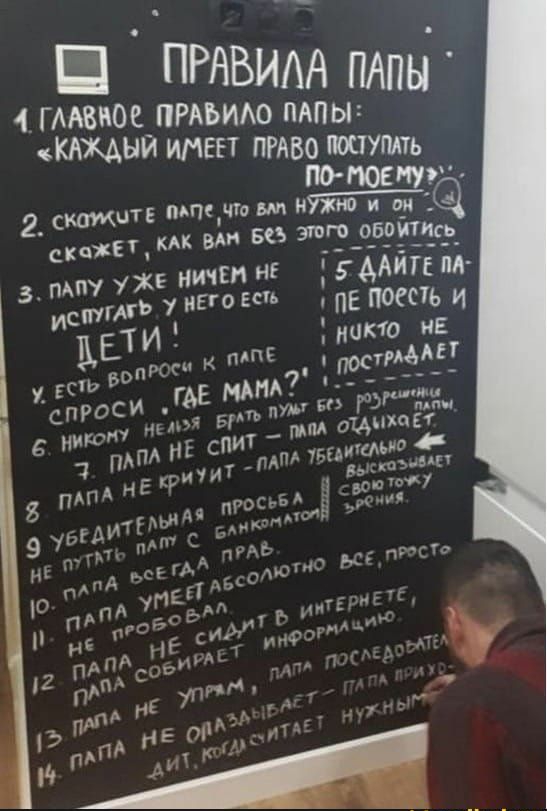 ПРАВИЛА ПАПЫ
1. ГЛАВНОЕ ПРАВИЛО ПАПЫ:
«КАЖДЫЙ ИМЕЕТ ПРАВО ПОСТУПАТЬ
ПО-МОЕМУ»
2. СКАЖИТЕ ПАПЕ, ЧТО ВАМ НУЖНО И ОН
СКАЖЕТ, КАК ВАМ БЕЗ ЭТОГО ОБОЙТИСЬ
3. ПАПУ УЖЕ НИЧЕМ НЕ
ИСПУГАТЬ У НЕГО ЕСТЬ
ДЕТИ!
4. ЕСТЬ ВОПРОСЫ К ПАПЕ
СПРОСИ „ГДЕ МАМА?"
5. ДАЙТЕ ПА-
ПЕ ПОЕСТЬ И
НИКТО НЕ
ПОСТРАДАЕТ
6. НИКОМУ НЕЛЬЗЯ БРАТЬ ПУЛЬТ БЕЗ РАЗРЕШЕНИЯ
ПАПЫ.
7. ПАПА НЕ СПИТ – ПАПА ОТДЫХАЕТ.
8. ПАПА НЕ КРИЧИТ – ПАПА УБЕДИТЕЛЬНО
ВЫСКАЗЫВАЕТ
СВОЮ ТОЧКУ
ЗРЕНИЯ.
9 УБЕДИТЕЛЬНАЯ ПРОСЬБА
НЕ ПУТАТЬ ПАПУ С БАНКОМАТОМ
10. ПАПА ВСЕГДА ПРАВ.
11. ПАПА УМЕЕТ АБСОЛЮТНО ВСЕ, ПРОСТО
НЕ ПРОБОВАЛ.
12. ПАПА НЕ СИДИТ В ИНТЕРНЕТЕ,
ПАПА СОБИРАЕТ ИНФОРМАЦИЮ.
13. ПАПА НЕ УПРЯМ, ПАПА ПОСЛЕДОВАТЕЛ
14. ПАПА НЕ ОПАЗДЫВАЕТ – ПАПА ПРИХО-
ДИТ, КОГДА СЧИТАЕТ НУЖНЫМ